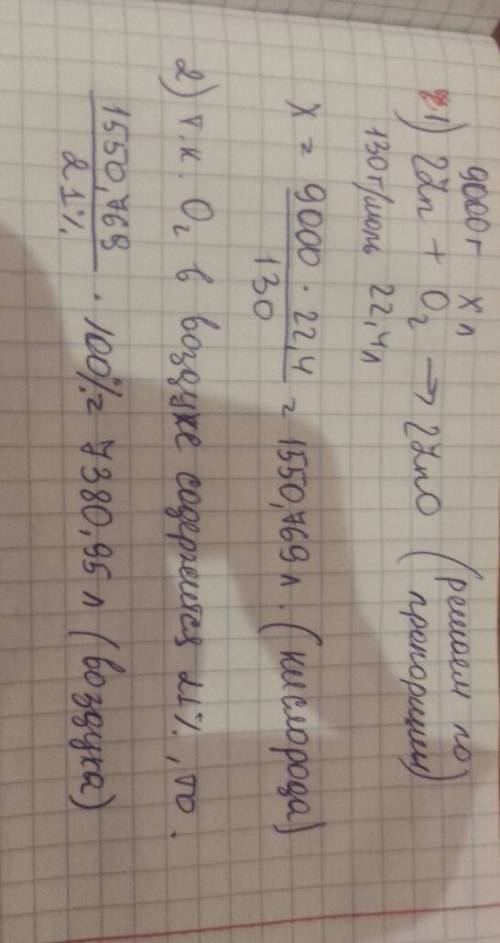 9000г x л
1) 2Zn + O₂ → 2ZnO (решаем по
130г/моль 22,4л пропорции)
x = 9000 · 22,4 / 130 = 1550,769 л. (кислорода)
2) т.к. O₂ в воздухе содержится 21%, то.
1550,769 / 21% · 100% = 7380,95 л (воздуха)